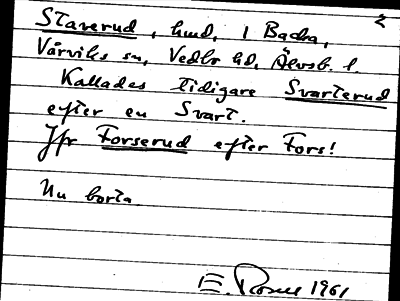 Staverud, hmd, i Backa, 2
Vårviks sn, Vedbo hd, Älvsb. l.
Kallades tidigare Svarterud
efter en Svart.
Jfr Forserud efter Fors!
Nu borta
E. Rosell 1961